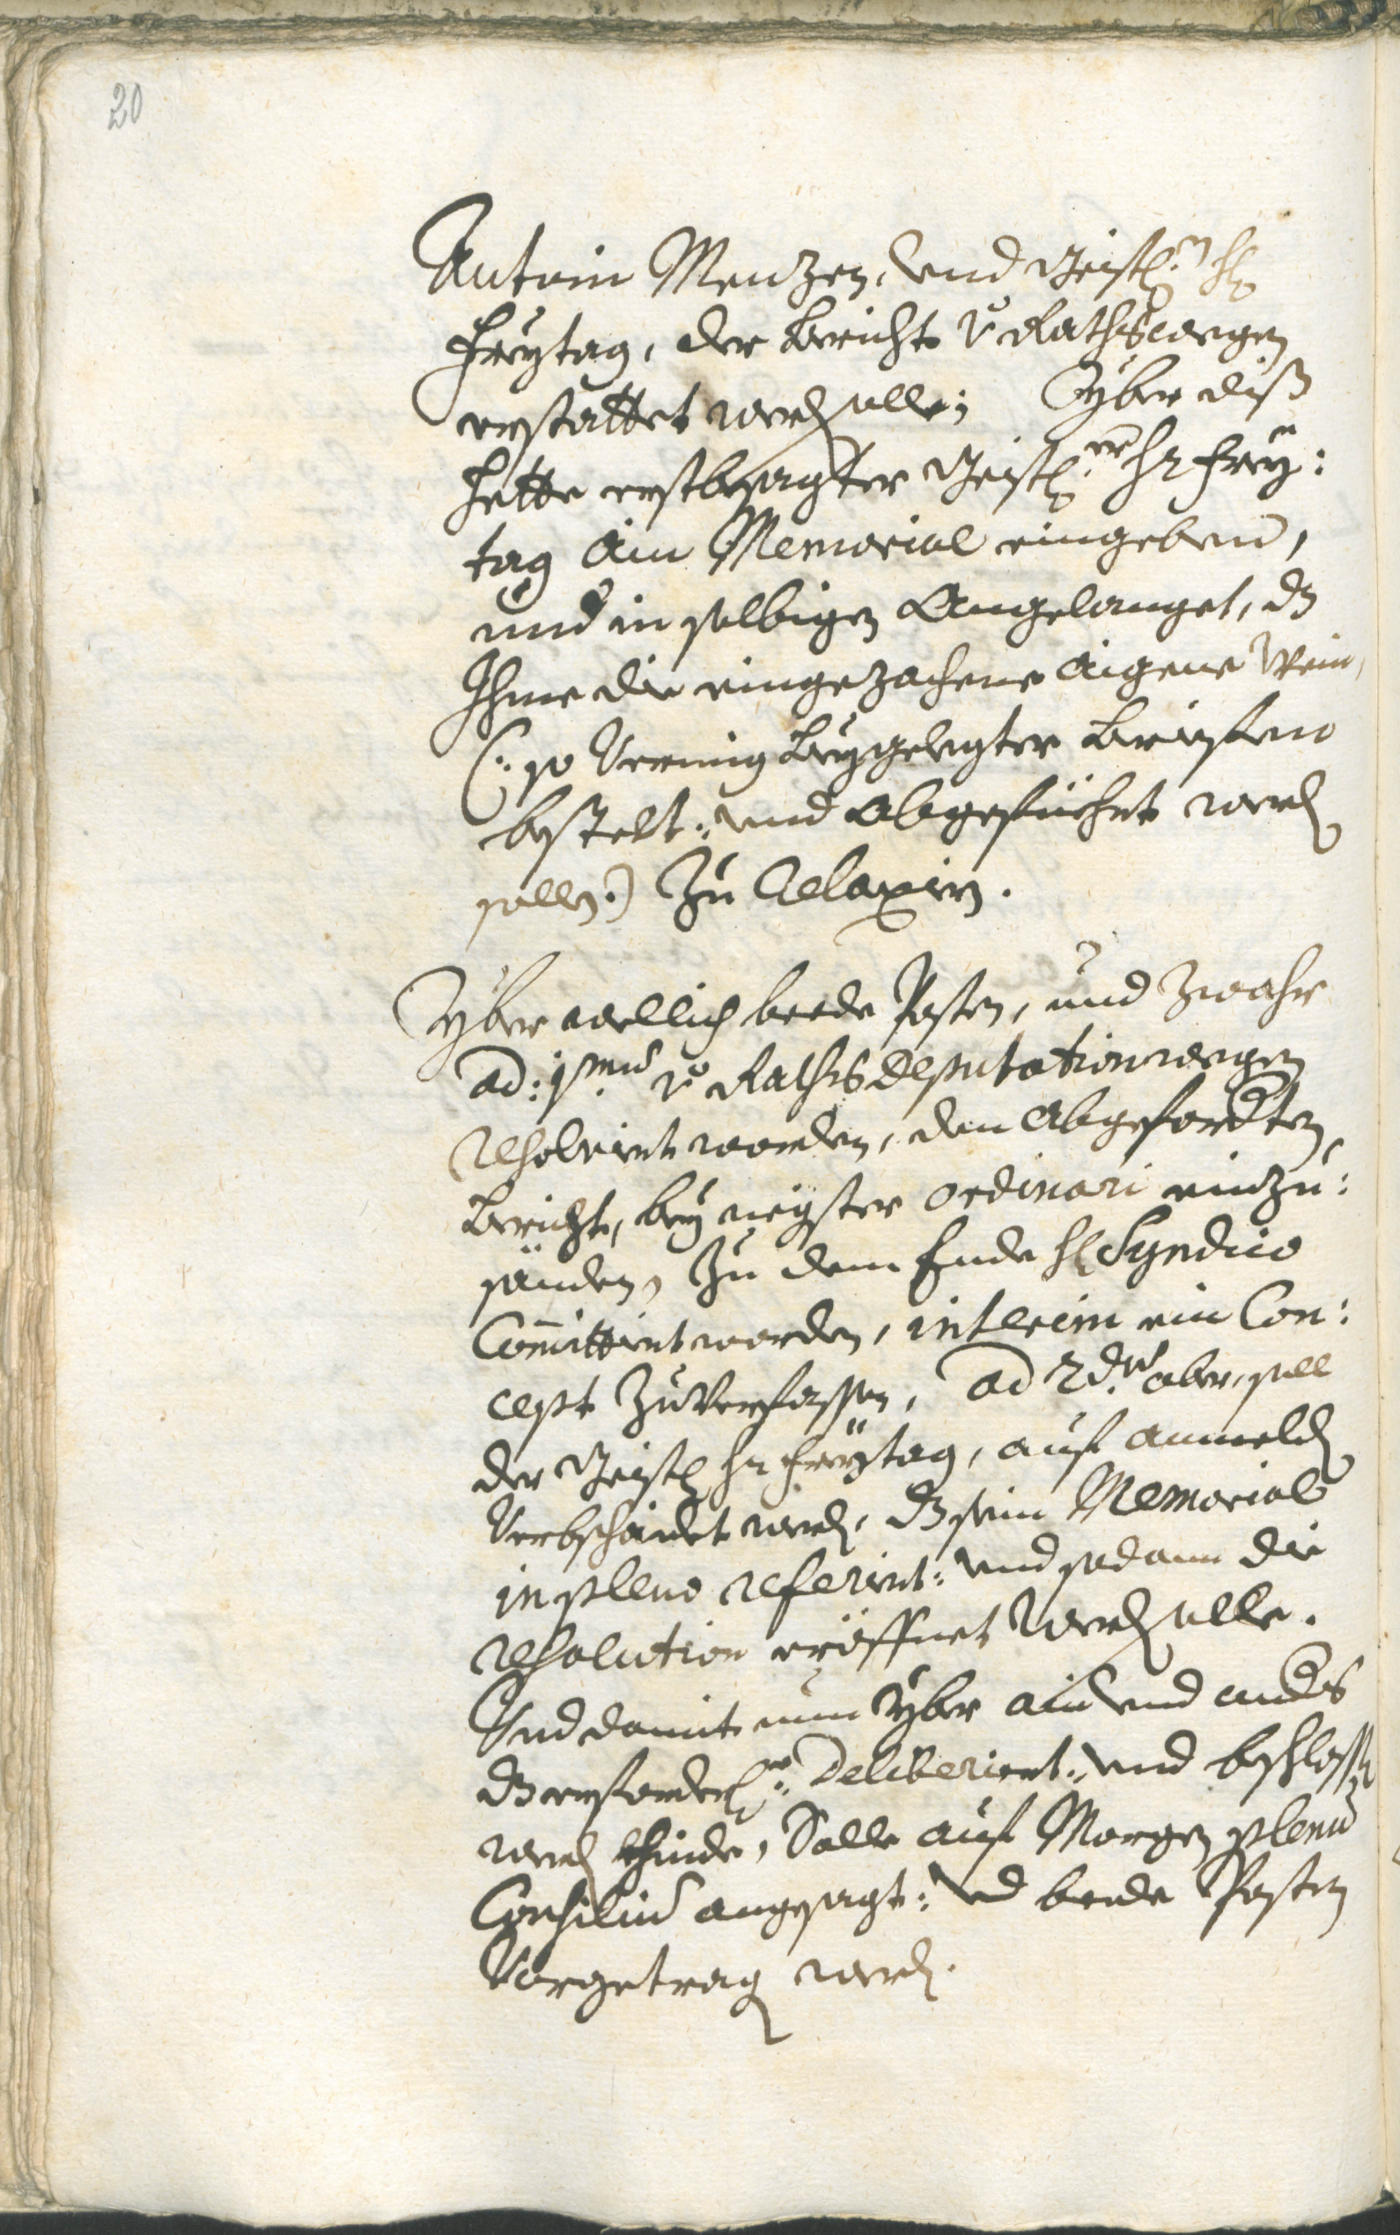 20
Antoni Menzen, vnd Geistl.n H.
Freytag, der Bericht v Rathswegen
erstattet werd solle; Yber diß
hette erstbesagter Geistl.er Hr Frey:
tag ain Memorial eingeben,
und in selbigen Angelanget, dz
Ihme die eingezochene aigene Wein,
(: so Vermig beygelegter briefen
bestelt: und abgefüehrt werd
sollen:) Zu Relaxirn.
Yber wellich beede Posten, und zwahr
ad: 1mu v Raths deputation wegen
resolvirt worden, den Abgefordten
Bericht, bey negster ordinari einzu:
sänden, Zu dem Ende H Syndico
Comittirt worden, interim ein Con:
cept zu Verfassen, ad 2du aber, soll
der Geistl Hr Freytag, auf anmeld
Verbschaidet werd, dz sein Memorial
in pleno referirt: und sodann die
resolution eröffnet werd solle.
Vnd damit nun yber ain und anders
dz erforderl.e Deliberiert: und beschloss
werd khinde, Solle auf Morgen plenu
Consiliu angesagt: vnd beede Posten
Vorgetrag werd.